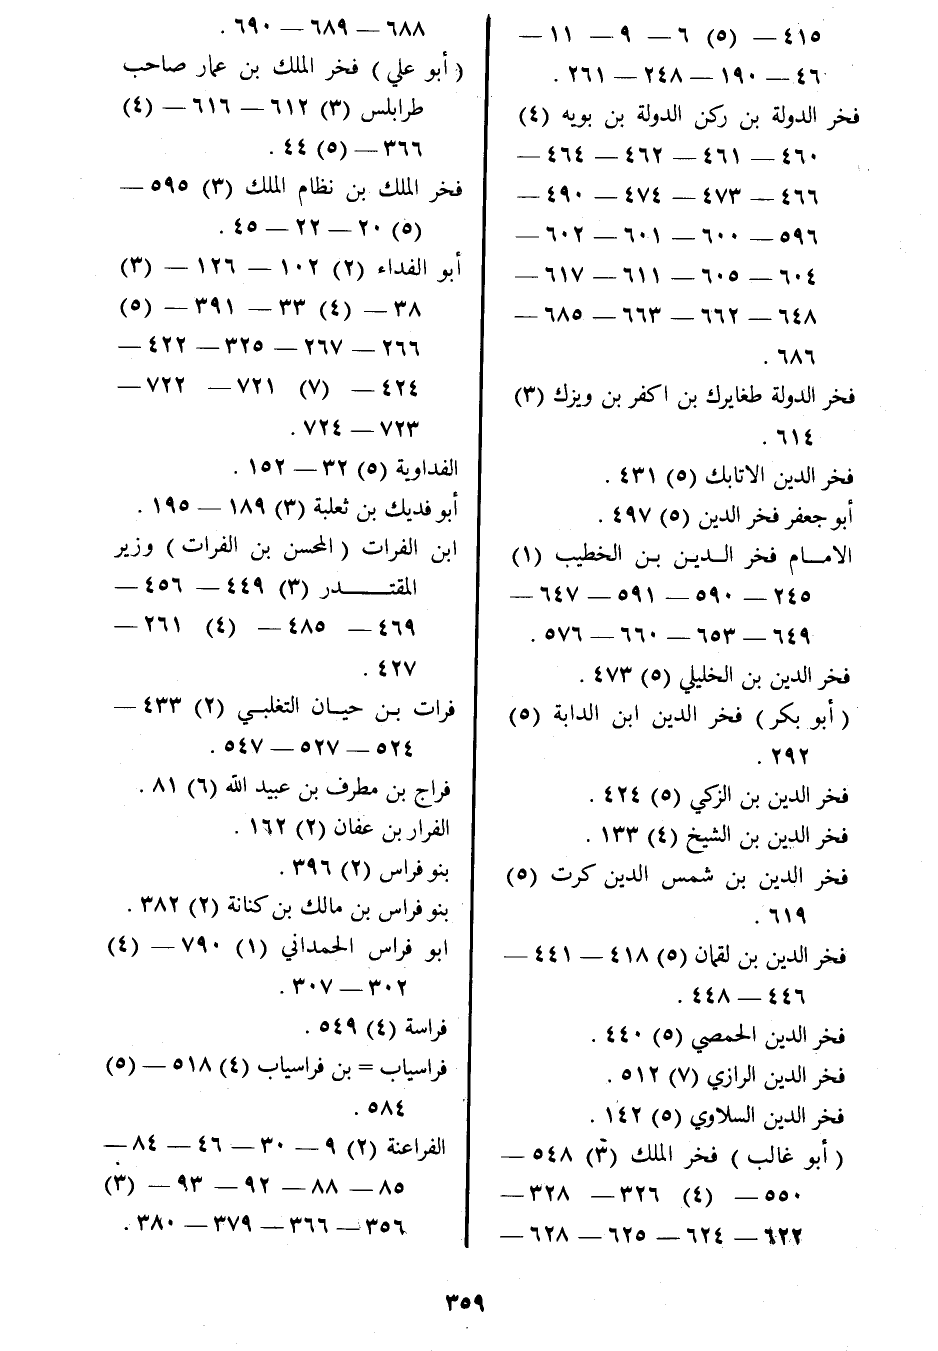 ٤١٥ — (٥) ٦ — ٩ — ١١ —
٤٦ — ١٩٠ — ٢٤٨ — ٢٦١ .
فخر الدولة بن ركن الدولة بن بويه (٤)
٤٦٠ — ٤٦١ — ٤٦٢ — ٤٦٤ —
٤٦٦ — ٤٧٣ — ٤٧٤ — ٤٩٠ —
٥٩٦ — ٦٠٠ — ٦٠١ — ٦٠٢ —
٦٠٤ — ٦٠٥ — ٦١١ — ٦١٧ —
٦٤٨ — ٦٦٢ — ٦٦٣ — ٦٨٥ —
٦٨٦ .
فخر الدولة طغايرك بن اكفر بن ويزك (٣)
٦١٤ .
فخر الدين الاتابك (٥) ٤٣١ .
أبو جعفر فخر الدين (٥) ٤٩٧ .
الامام فخر الدين بن الخطيب (١)
٢٤٥ — ٥٩٠ — ٥٩١ — ٦٤٧ —
٦٤٩ — ٦٥٣ — ٦٦٠ — ٥٧٦ .
فخر الدين بن الخليلي (٥) ٤٧٣ .
( أبو بكر ) فخر الدين ابن الداية (٥)
٢٩٢ .
فخر الدين بن الزكي (٥) ٤٢٤ .
فخر الدين بن الشيخ (٤) ١٣٣ .
فخر الدين بن شمس الدين كرت (٥)
٦١٩ .
فخر الدين بن لقمان (٥) ٤١٨ — ٤٤١ —
٤٤٦ — ٤٤٨ .
فخر الدين الحمصي (٥) ٤٤٠ .
فخر الدين الرازي (٧) ٥١٢ .
فخر الدين السلاوي (٥) ١٤٢ .
( أبو غالب ) فخر الملك (٣) ٥٤٨ —
٥٥٠ — (٤) ٣٢٦ — ٣٢٨ —
٦٢٢ — ٦٢٤ — ٦٢٥ — ٦٢٨ —
٦٨٨ — ٦٨٩ — ٦٩٠ .
( أبو علي ) فخر الملك بن عمار صاحب
طرابلس (٣) ٦١٢ — ٦١٦ — (٤)
٣٦٦ — (٥) ٤٤ .
فخر الملك بن نظام الملك (٣) ٥٩٥ —
(٥) ٢٠ — ٢٢ — ٤٥ .
أبو الفداء (٢) ١٠٢ — ١٢٦ — (٣)
٣٨ — (٤) ٣٣ — ٣٩١ — (٥)
٢٦٦ — ٢٦٧ — ٣٢٥ — ٤٢٢ —
٤٢٤ — (٧) ٧٢١ — ٧٢٢ —
٧٢٣ — ٧٢٤ .
الفداوية (٥) ٣٢ — ١٥٢ .
أبو فديك بن ثعلبة (٣) ١٨٩ — ١٩٥ .
ابن الفرات ( المحسن بن الفرات ) وزير
المقتدر (٣) ٤٤٩ — ٤٥٦ —
٤٦٩ — ٤٨٥ — (٤) ٢٦١ —
٤٢٧ .
فرات بن حيان التغلبي (٢) ٤٣٣ —
٥٢٤ — ٥٢٧ — ٥٤٧ .
فراج بن مطرف بن عبيد الله (٦) ٨١ .
الفرار بن عفان (٢) ١٦٢ .
بنو فراس (٢) ٣٩٦ .
بنو فراس بن مالك بن كنانة (٢) ٣٨٢ .
ابو فراس الحمداني (١) ٧٩٠ — (٤)
٣٠٢ — ٣٠٧ .
فراسة (٤) ٥٤٩ .
فراسياب = بن فراسياب (٤) ٥١٨ — (٥)
٥٨٤ .
الفراعنة (٢) ٩ — ٣٠ — ٤٦ — ٨٤ —
٨٥ — ٨٨ — ٩٢ — ٩٣ — (٣)
٣٥٦ — ٣٦٦ — ٣٧٩ — ٣٨٠ .
٣٥٩